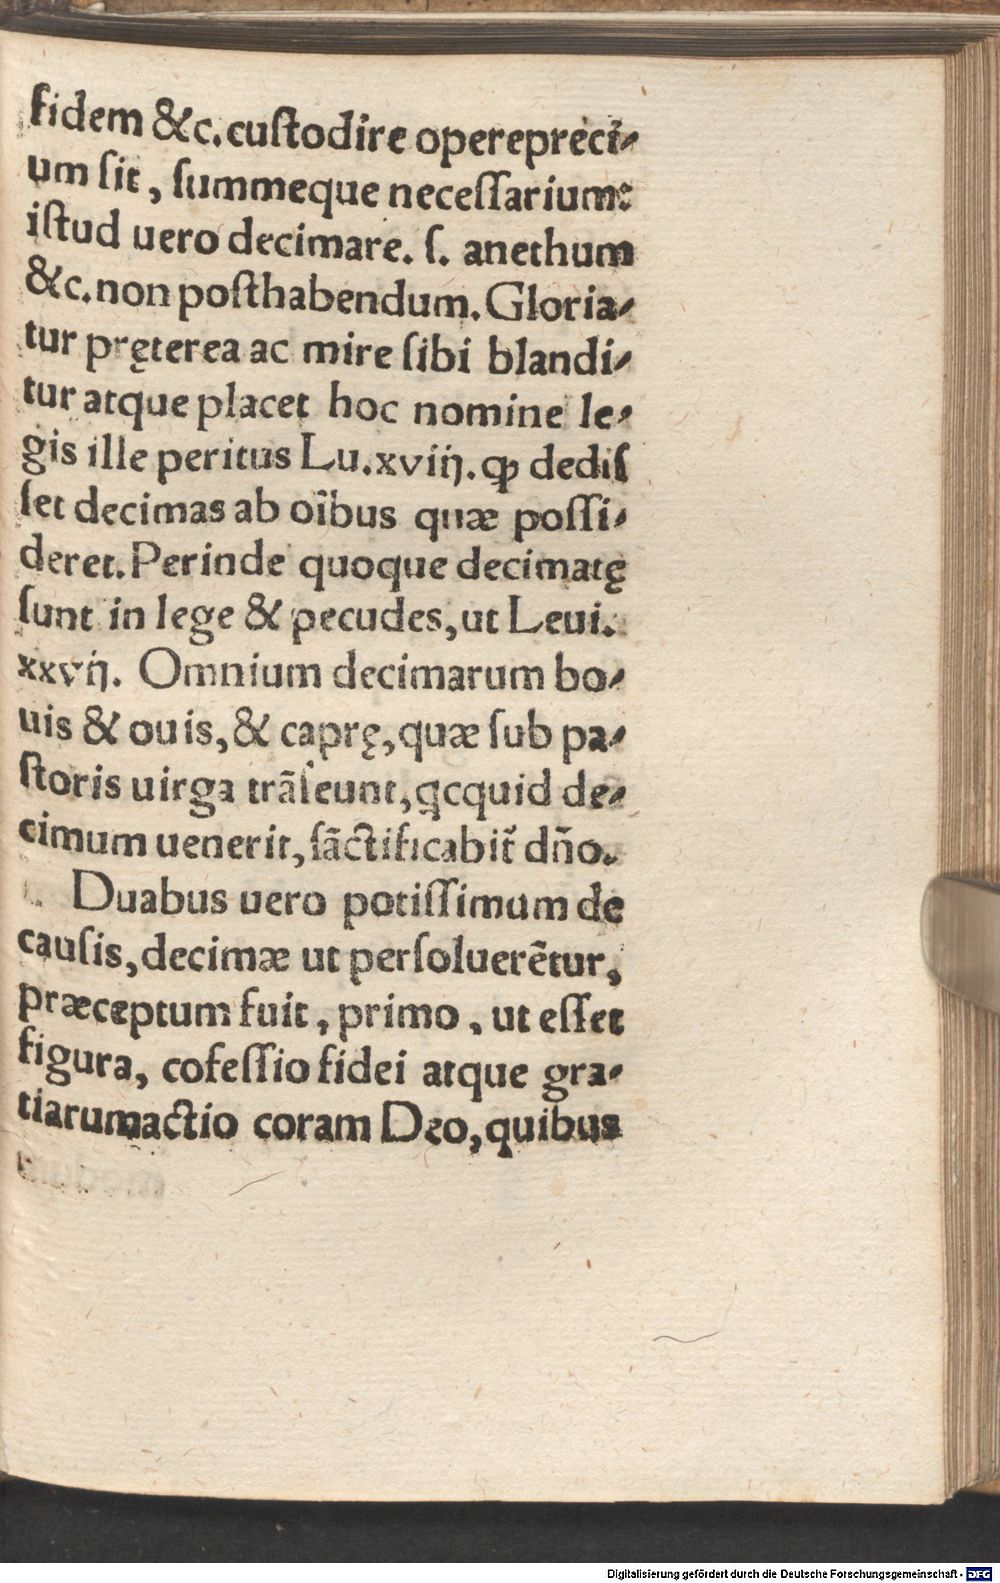 fidem &c. cuſtodire opereprèci⸗
um ſit, ſummeque neceſſarium:
iſtud uero decimare. ſ. anethum
&c. non poſthabendum. Gloria⸗
tur pręterea ac mire ſibi blandi⸗
tur atque placet hoc nomine le⸗
gis ille peritus Lu. xviij. ꝙ dediſ
ſet decimas ab oı̃bus quæ poſſi⸗
deret. Perinde quoque decimatę
ſunt in lege & pecudes, ut Leui.
xxvij. Omnium decimarum bo⸗
uis & ouis, & caprę, quæ ſub pa⸗
ſtoris uirga trãſeunt, ꝗcquid de⸗
cimum uenerit, ſãctificabit̃ dño.
Duabus uero potiſſimum de
cauſis, decimæ ut perſoluerẽtur,
præceptum fuit, primo, ut eſſet
figura, cofeſſio fidei atque gra⸗
tiarumactio coram Deo, quibus
Digitalisierung gefördert durch die Deutsche Forschungsgemeinschaft - DFG